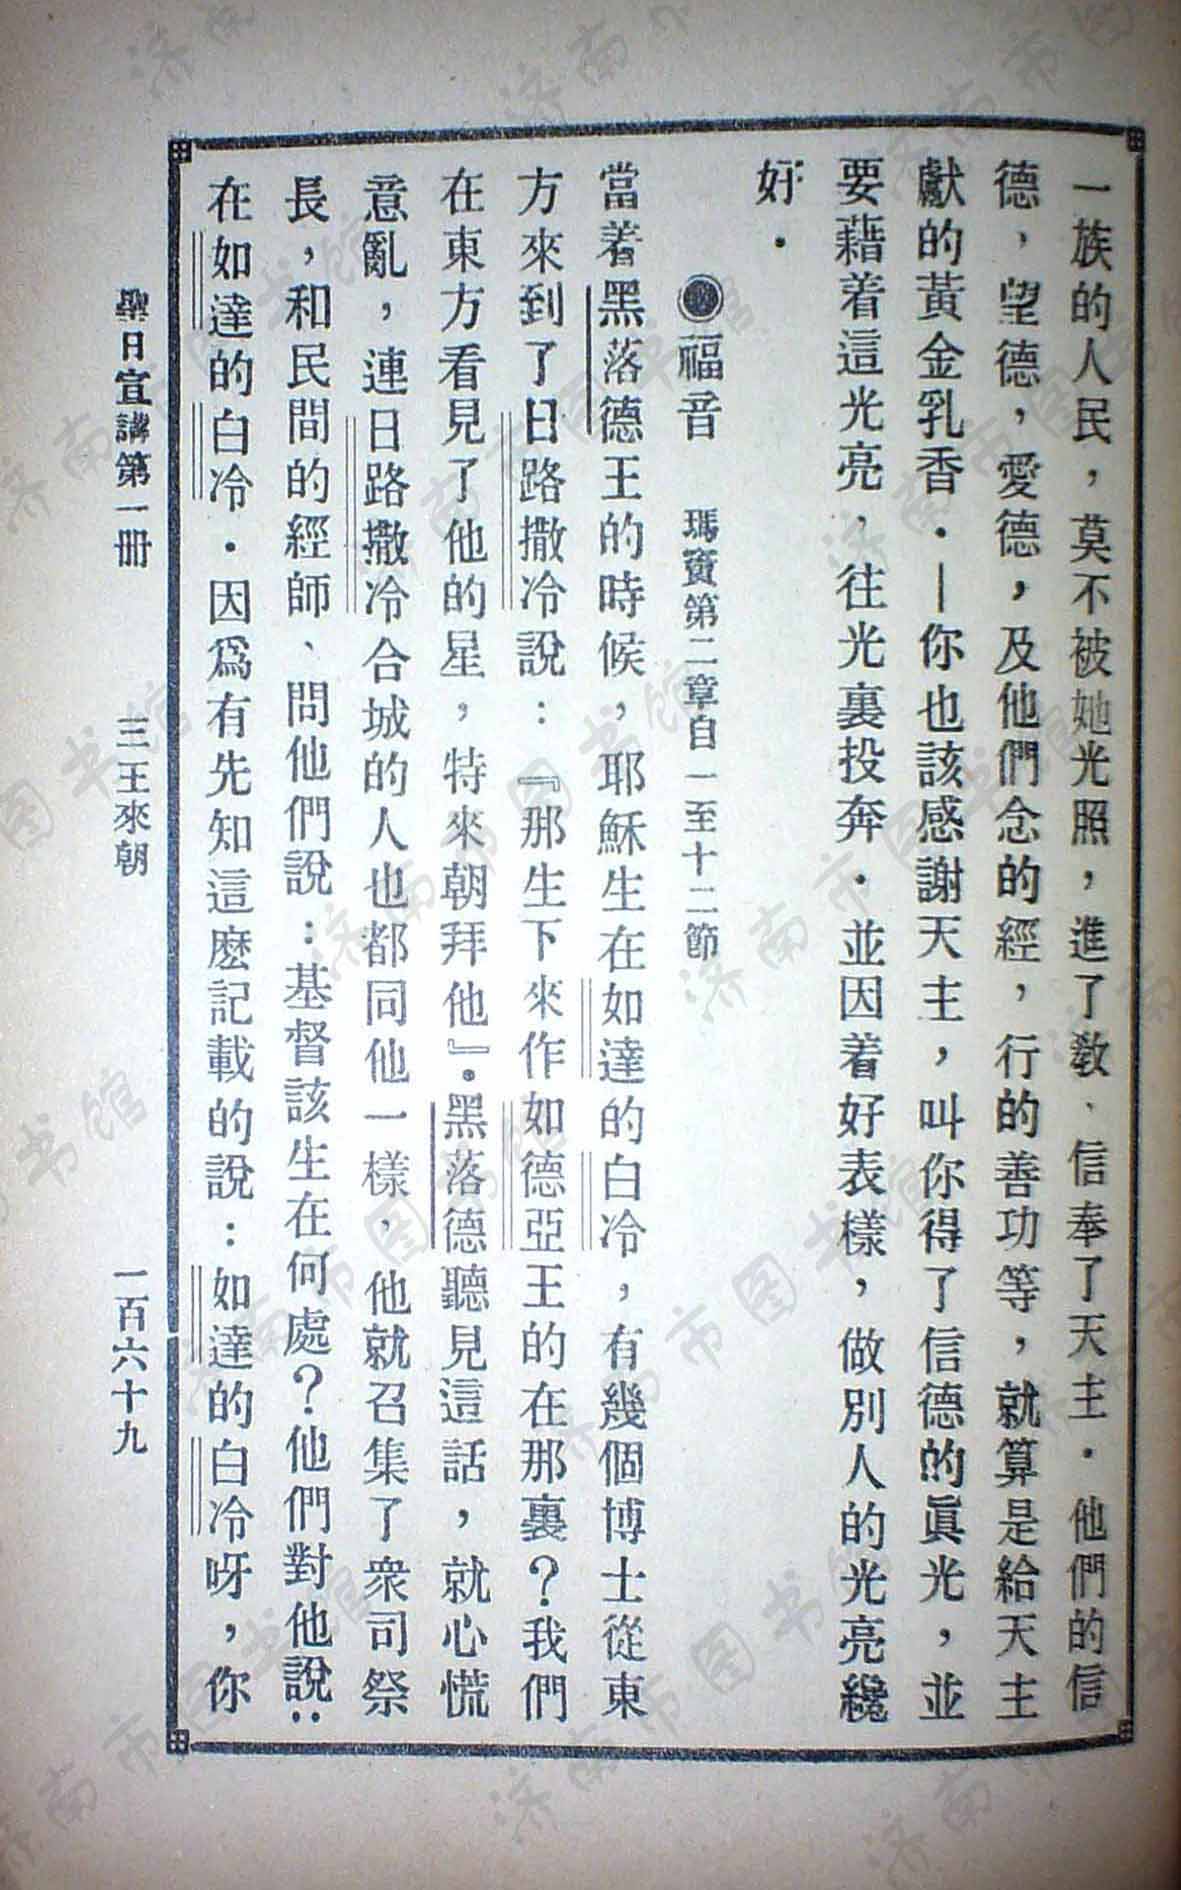 一族的人民，莫不被她光照，進了敎、信奉了天主．他們的信
德，望德，愛德，及他們念的經，行的善功等，就算是給天主
獻的黃金乳香．—你也該感謝天主，叫你得了信德的眞光，並
要藉着這光亮，往光裏投奔．並因着好表樣，做別人的光亮纔
好．
福音　瑪竇第二章自一至十二節
當着黑落德王的時候，耶穌生在如達的白冷，有幾個博士從東
方來到了日路撒冷說：『那生下來作如德亞王的在那裏？我們
在東方看見了他的星，特來朝拜他』．黑落德聽見這話，就心慌
意亂，連日路撒冷合城的人也都同他一樣，他就召集了衆司祭
長，和民間的經師、問他們說：基督該生在何處？他們對他說：
在如達的白冷．因爲有先知這麽記載的說：如達的白冷呀，你
聖日宣講第一冊　三王來朝　一百六十九
济南市图书馆